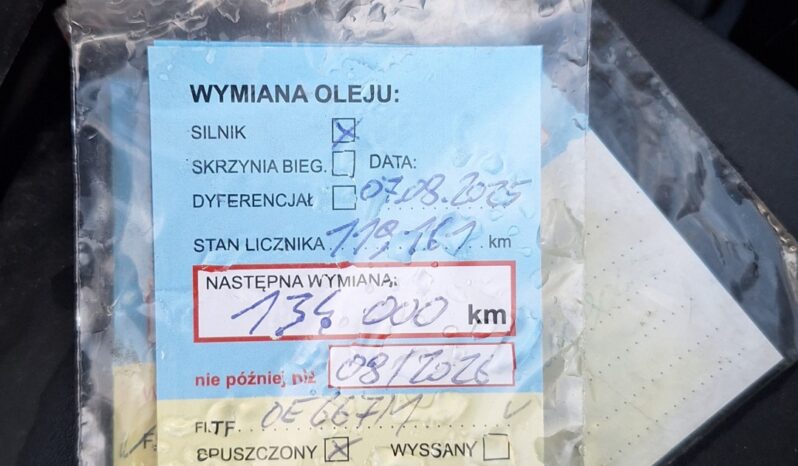 WYMIANA OLEJU:
SILNIK
SKRZYNIA BIEG. DATA:
DYFERENCJAŁ 07.08.2025
STAN LICZNIKA 119,161 km
NASTĘPNA WYMIANA:
134.000 km
nie później niż 08/2026
OE667/1
SPUSZCZONY WYSSANY